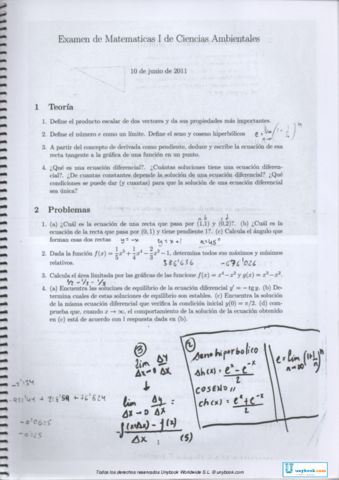 Examen de Matematicas I de Ciencias Ambientales
10 de junio de 2011
1 Teoría
1. Define el producto escalar de dos vectores y da sus propiedades más importantes.
2. Define el número e como un límite. Define el seno y coseno hiperbólicos
3. A partir del concepto de derivada como pendiente, deduce y escribe la ecuación de esa
recta tangente a la gráfica de una función en un punto.
4. ¿Qué es una ecuación diferencial?. ¿Cuántas soluciones tiene una ecuación diferen-
cial?. ¿De cuantas constantes depende la solución de una ecuación diferencial? ¿Qué
condiciones se puede dar (y cuantas) para que la solución de una ecuación diferencial
sea única?
2 Problemas
1. (a) ¿Cuál es la ecuación de una recta que pasa por (1,1) y (0,2)?. (b) ¿Cuál es la
ecuación de la recta que pasa por (0,1) y tiene pendiente 1?. (c) Calcula el ángulo que
forman esas dos rectas y = -x y = x+1
2. Dada la función f(x) = 1/5 x⁵ + 1/4 x⁴ − 2/3 x³ − 1, determina todos sus máximos y mínimos
relativos.
3. Calcula el área limitada por las gráficas de las funciones f(x) = x⁴ − x² y g(x) = x³ − x².
4. (a) Encuentra las soluciones de equilibrio de la ecuación diferencial y' = − tg y. (b) De-
termina cuales de estas soluciones de equilibrio son estables. (c) Encuentra la solución
de la misma ecuación diferencial que verifica la condición inicial y(0) = π/2. (d) com-
prueba que, cuando x → ∞, el comportamiento de la solución de la ecuación obtenido
en (c) está de acuerdo con l respuesta dada en (b).
③
lim Δy
Δx→0 Δx
lim Δy
Δx→0 Δx
f(x+Δx) - f(x)
Δx
(5)
②
seno hiperbolico
sh(x) = (e^x - e^-x)/2
COSENO
ch(x) = (e^x + e^-x)/2
e = lim n→∞ (1+1/n)^n
Todos los derechos reservados Unybook Worldwide S.L. © unybook.com
unybook.com